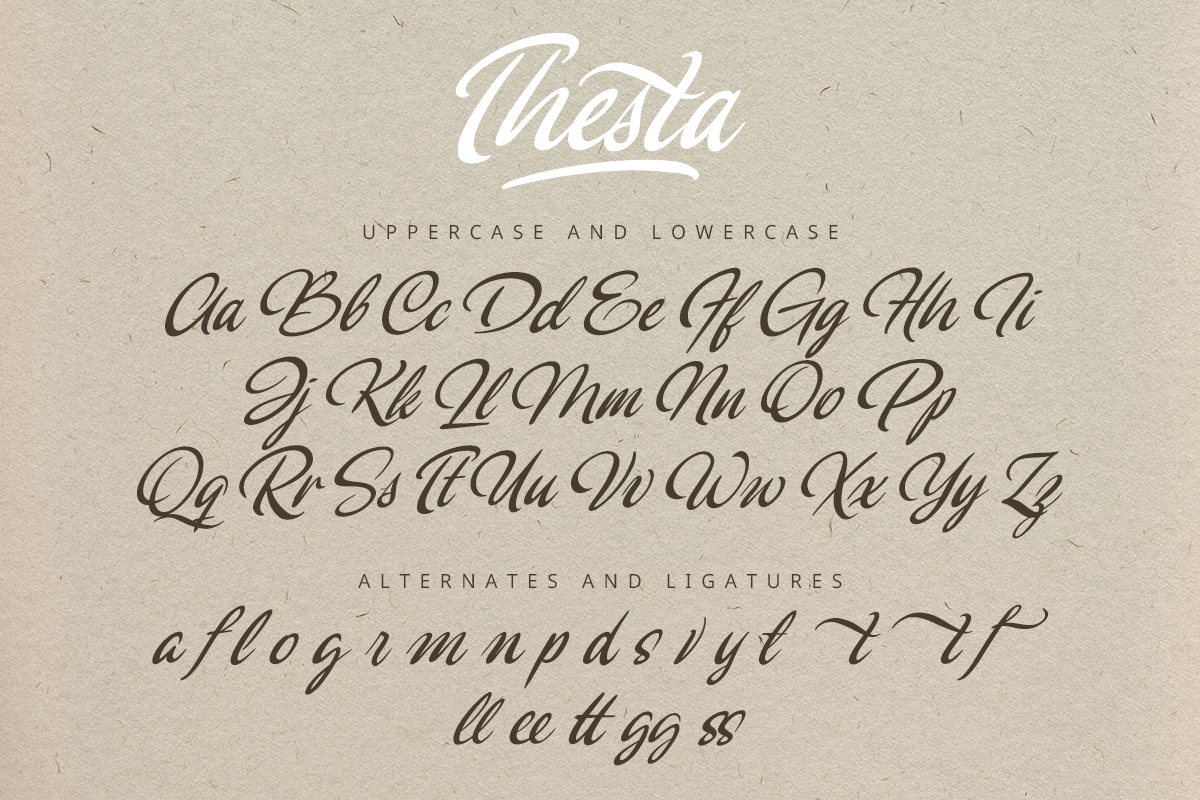 Thesta
UPPERCASE AND LOWERCASE
Aa Bb Cc Dd Ee Ff Gg Hh Ii
Jj Kk Ll Mm Nn Oo Pp
Qq Rr Ss Tt Uu Vv Ww Xx Yy Zz
ALTERNATES AND LIGATURES
a f l o g r m n p d s v y t t t f
ll ee tt gg ss